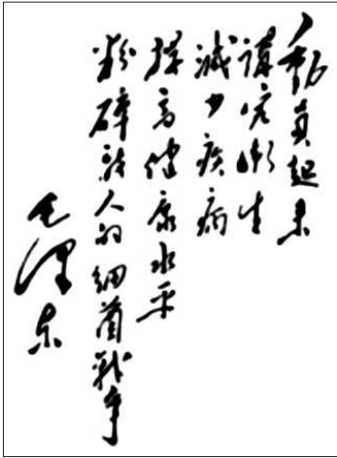 动员起来
讲究卫生
减少疾病
提高健康水平
粉碎敌人的细菌战争
毛泽东